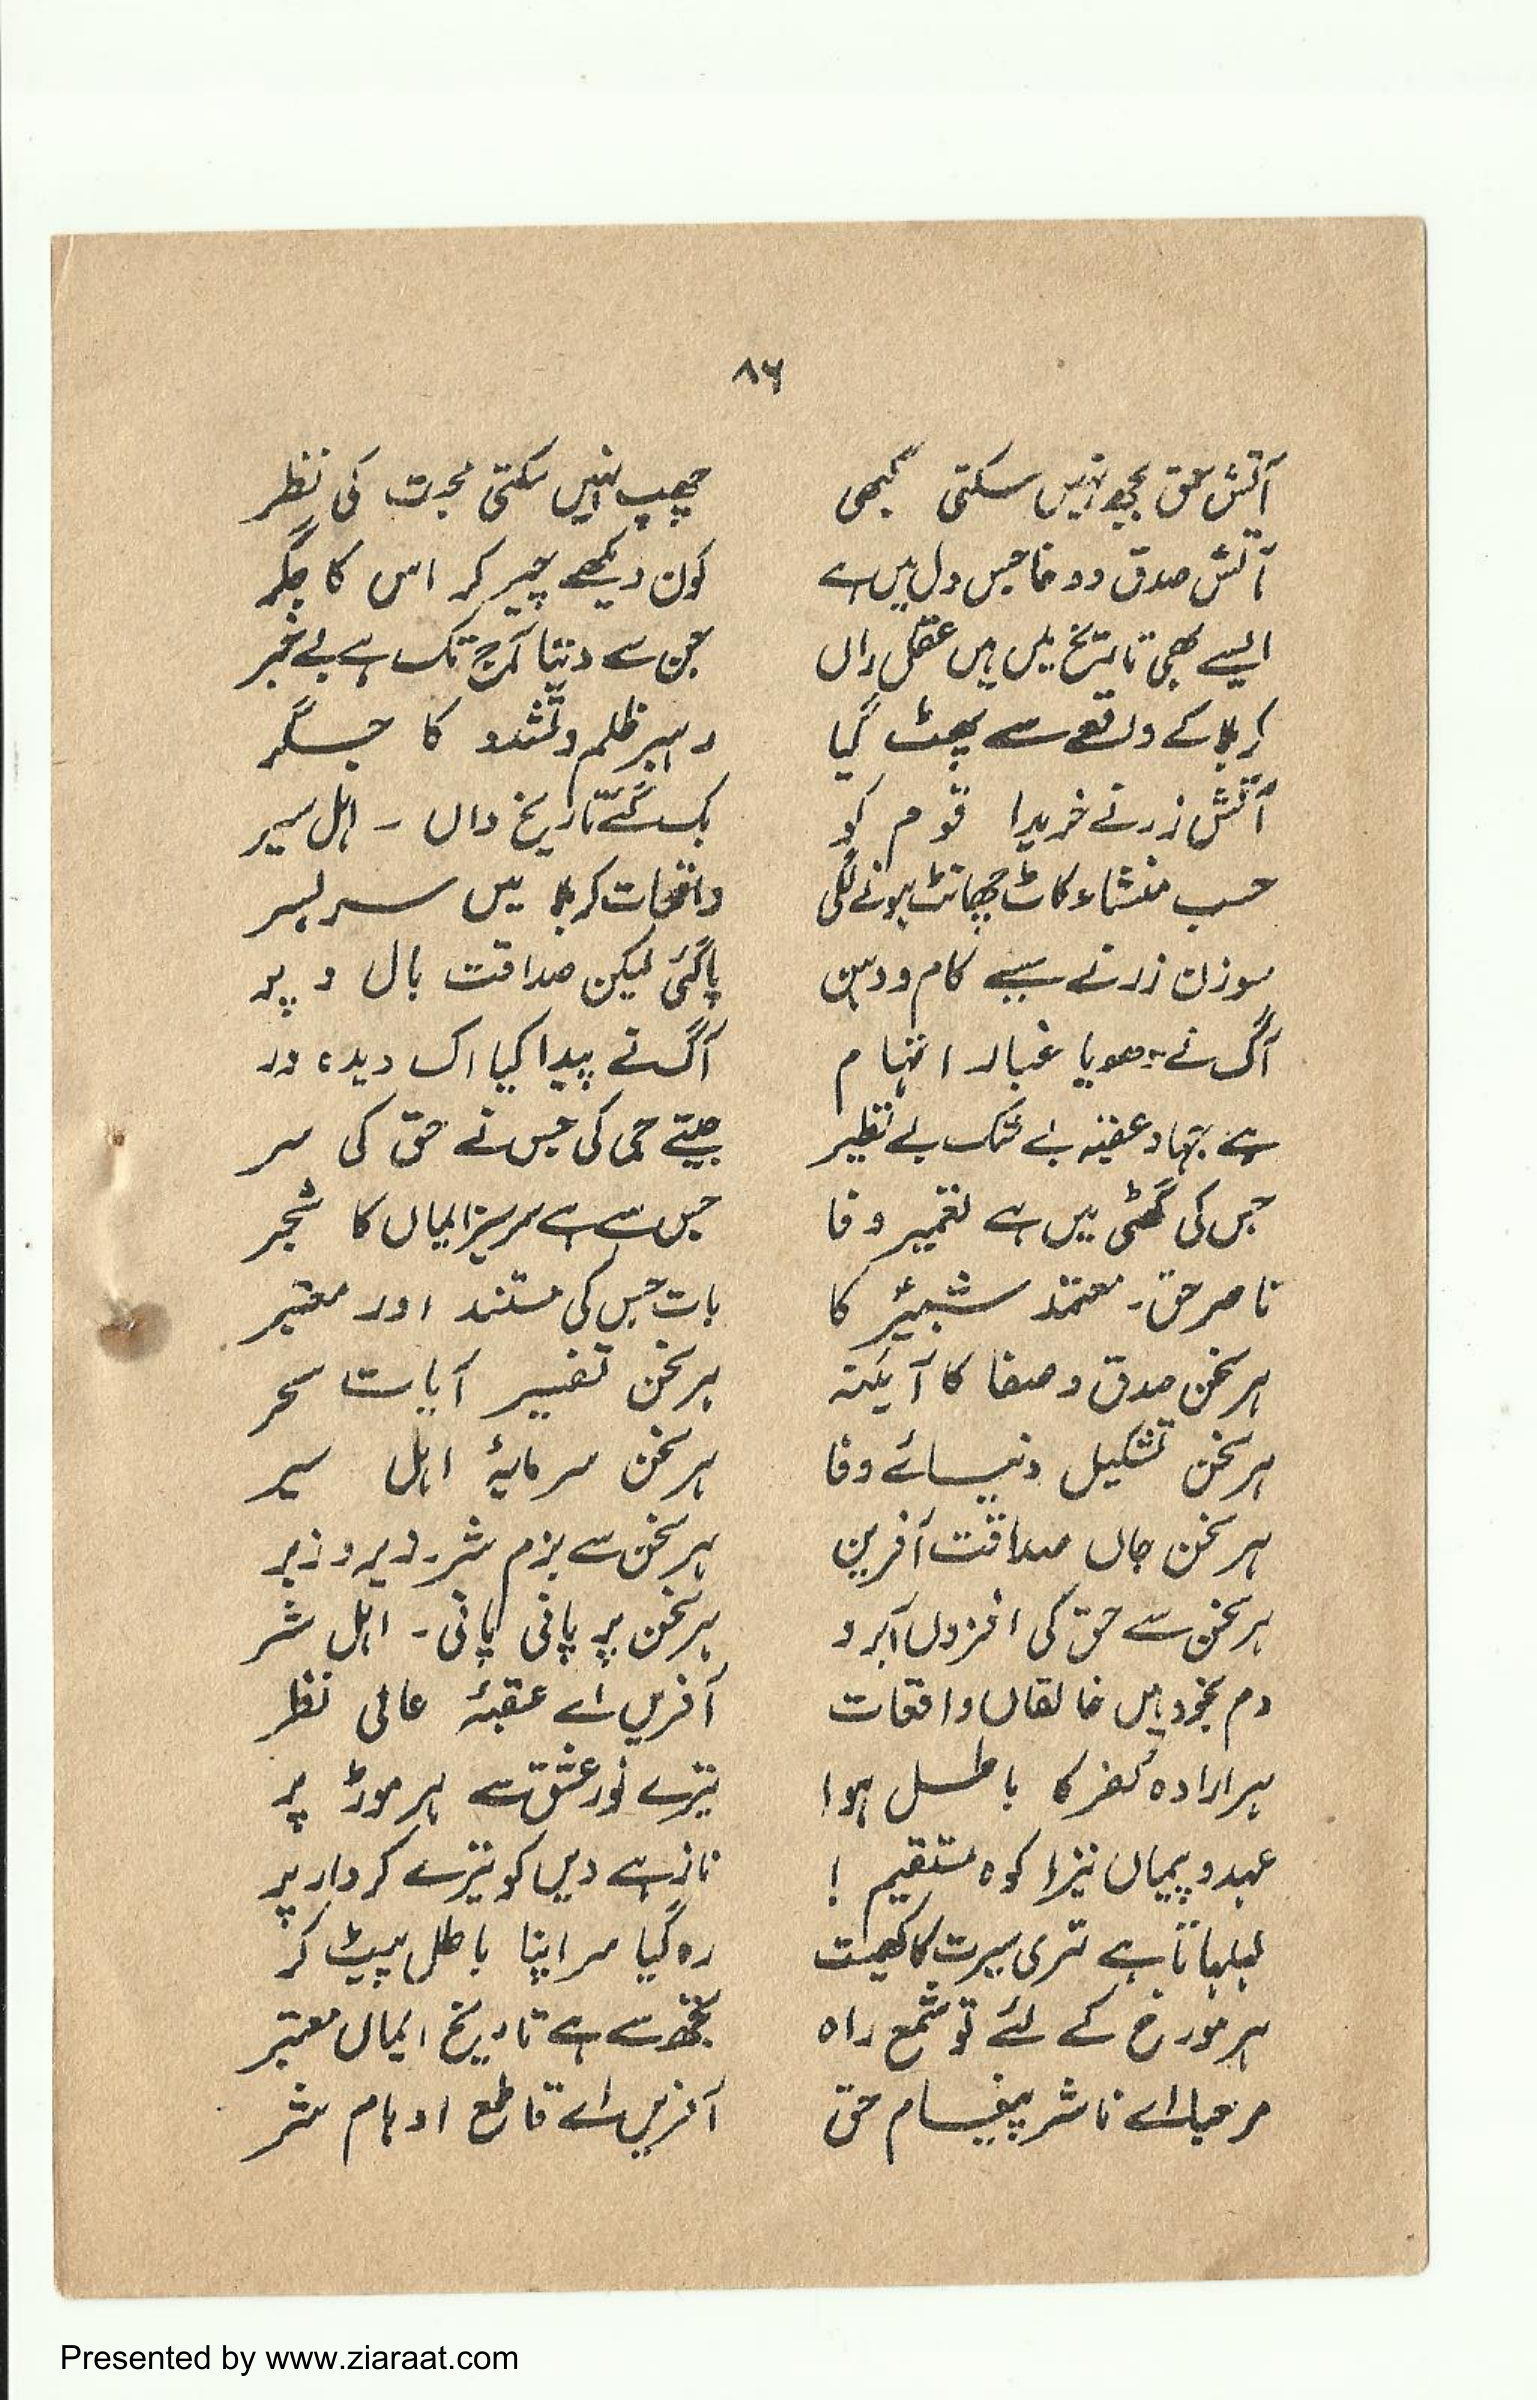 ۸۶
آتشِ حق بجھ نہیں سکتی کبھی چھپ نہیں سکتی محبت کی نظر
آتش صدق و وفا جس دل میں ہے کون دیکھے چیر کر اس کا جگر
ایسے بھی تاریخ میں ہیں عقل داں جن سے دنیا آج تک ہے بے خبر
کربلا کے واقعے سے پھٹ گیا رہبر ظلم و تشدد کا جگر
آتش زر نے خریدا قوم کو بک گئے تاریخ داں ۔ اہل سیر
حسب منشاء کاٹ چھانٹ ہونے لگی واقعات کربلا میں سر بسر
سوزن زر نے سیے کام و دہن پا گئی لیکن صداقت بال و پر
آگ نے دھویا غبار اتہام آگ نے پیدا کیا اک دیدہ ور
ہے جہاد عقبہ بے شک بے نظیر جیتے جی کی جس نے حق کی سر
جس کی گھٹی میں ہے تعمیر وفا جس سے ہے سرسبز ایماں کا شجر
ناصر حق ۔ معتمد شبیرؑ کا بات جس کی مستند اور معتبر
ہر سخن صدق و صفا کا آئینہ ہر سخن تفسیر آیات سحر
ہر سخن تشکیل دنیائے وفا ہر سخن سرمایۂ اہل سیر
ہر سخن جاں صداقت آفریں ہر سخن سے بزم شر ۔ زیر و زبر
ہر سخن سے حق کی افزوں آبرو ہر سخن پر پانی پانی ۔ اہل شر
دم بخود ہیں خالقاں واقعات آفریں اے عقبۂ عالی نظر
ہر ارادہ کفر کا باطل ہوا تیرے نورِ عشق سے ہر موڑ پر
عہد و پیماں تیرا کوہ مستقیم ! ناز ہے دیں کو تیرے کردار پر
لہلہاتا ہے تری سیرت کا کھیت رہ گیا سر اپنا باطل پیٹ کر
ہر مورخ کے لئے تو شمع راہ تجھ سے ہے تاریخ ایماں معتبر
مرحبا اے ناشر پیغام حق آفریں اے قاطع اوہام شر
Presented by www.ziaraat.com